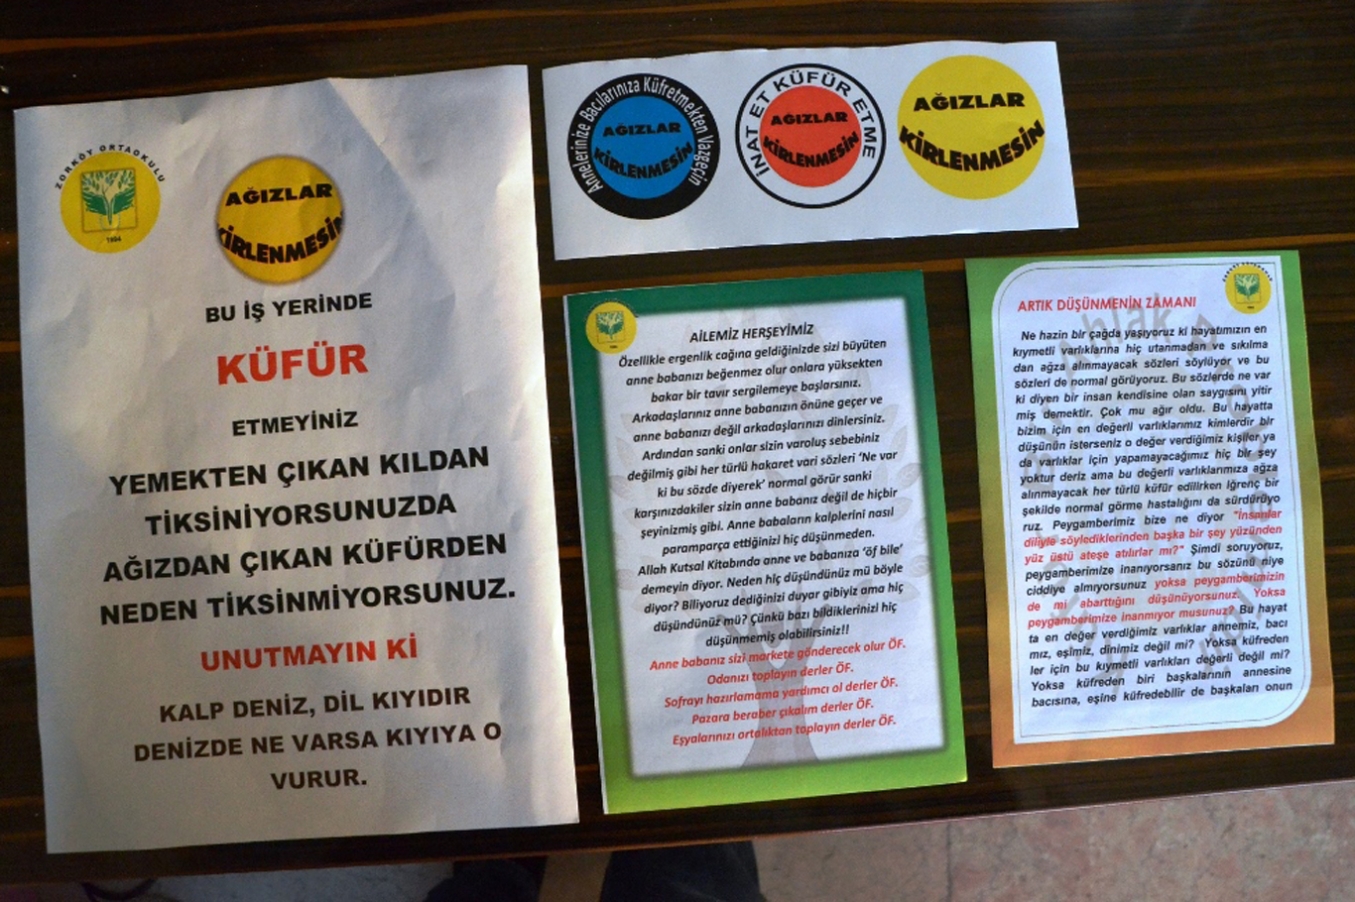 ZORKÖY ORTAOKULU
1994
AĞIZLAR
KİRLENMESİN
BU İŞ YERİNDE
KÜFÜR
ETMEYİNİZ
YEMEKTEN ÇIKAN KILDAN
TİKSİNİYORSUNUZDA
AĞIZDAN ÇIKAN KÜFÜRDEN
NEDEN TİKSİNMİYORSUNUZ.
UNUTMAYIN Kİ
KALP DENİZ, DİL KIYIDIR
DENİZDE NE VARSA KIYIYA O
VURUR.
Annelerinize Bacılarınıza Küfretmekten Vazgeçin
AĞIZLAR
KİRLENMESİN
İNAT ET KÜFÜR ETME
AĞIZLAR
KİRLENMESİN
AĞIZLAR
KİRLENMESİN
AİLEMİZ HERŞEYİMİZ
Özellikle ergenlik cağına geldiğinizde sizi büyüten
anne babanızı beğenmez olur onlara yüksekten
bakar bir tavır sergilemeye başlarsınız.
Arkadaşlarınız anne babanızın önüne geçer ve
anne babanızı değil arkadaşlarınızı dinlersiniz.
Ardından sanki onlar sizin varoluş sebebiniz
değilmiş gibi her türlü hakaret vari sözleri ‘Ne var
ki bu sözde diyerek’ normal görür sanki
karşınızdakiler sizin anne babanız değil de hiçbir
şeyinizmiş gibi. Anne babaların kalplerini nasıl
paramparça ettiğinizi hiç düşünmeden.
Allah Kutsal Kitabında anne ve babanıza ‘öf bile’
demeyin diyor. Neden hiç düşündünüz mü böyle
diyor? Biliyoruz dediğinizi duyar gibiyiz ama hiç
düşündünüz mü? Çünkü bazı bildiklerinizi hiç
düşünmemiş olabilirsiniz!!
Anne babanız sizi markete gönderecek olur ÖF.
Odanızı toplayın derler ÖF.
Sofrayı hazırlamama yardımcı ol derler ÖF.
Pazara beraber çıkalım derler ÖF.
Eşyalarınızı ortalıktan toplayın derler ÖF.
ARTIK DÜŞÜNMENİN ZAMANI
Ne hazin bir çağda yaşıyoruz ki hayatımızın en
kıymetli varlıklarına hiç utanmadan ve sıkılma
dan ağza alınmayacak sözleri söylüyor ve bu
sözleri de normal görüyoruz. Bu sözlerde ne var
ki diyen bir insan kendisine olan saygısını yitir
miş demektir. Çok mu ağır oldu. Bu hayatta
bizim için en değerli varlıklarımız kimlerdir bir
düşünün isterseniz o değer verdiğimiz kişiler ya
da varlıklar için yapamayacağımız hiç bir şey
yoktur deriz ama bu değerli varlıklarımıza ağza
alınmayacak her türlü küfür edilirken iğrenç bir
şekilde normal görme hastalığını da sürdürüyo
ruz. Peygamberimiz bize ne diyor "İnsanlar
diliyle söylediklerinden başka bir şey yüzünden
yüz üstü ateşe atılırlar mı?" Şimdi soruyoruz,
peygamberimize inanıyorsanız bu sözünü niye
ciddiye almıyorsunuz yoksa peygamberimizin
de mi abarttığını düşünüyorsunuz. Yoksa
peygamberimize inanmıyor musunuz? Bu hayat
ta en değer verdiğimiz varlıklar annemiz, bacı
mız, eşimiz, dinimiz değil mi? Yoksa küfreden
ler için bu kıymetli varlıkları değerli değil mi?
Yoksa küfreden biri başkalarının annesine
bacısına, eşine küfredebilir de başkaları onun